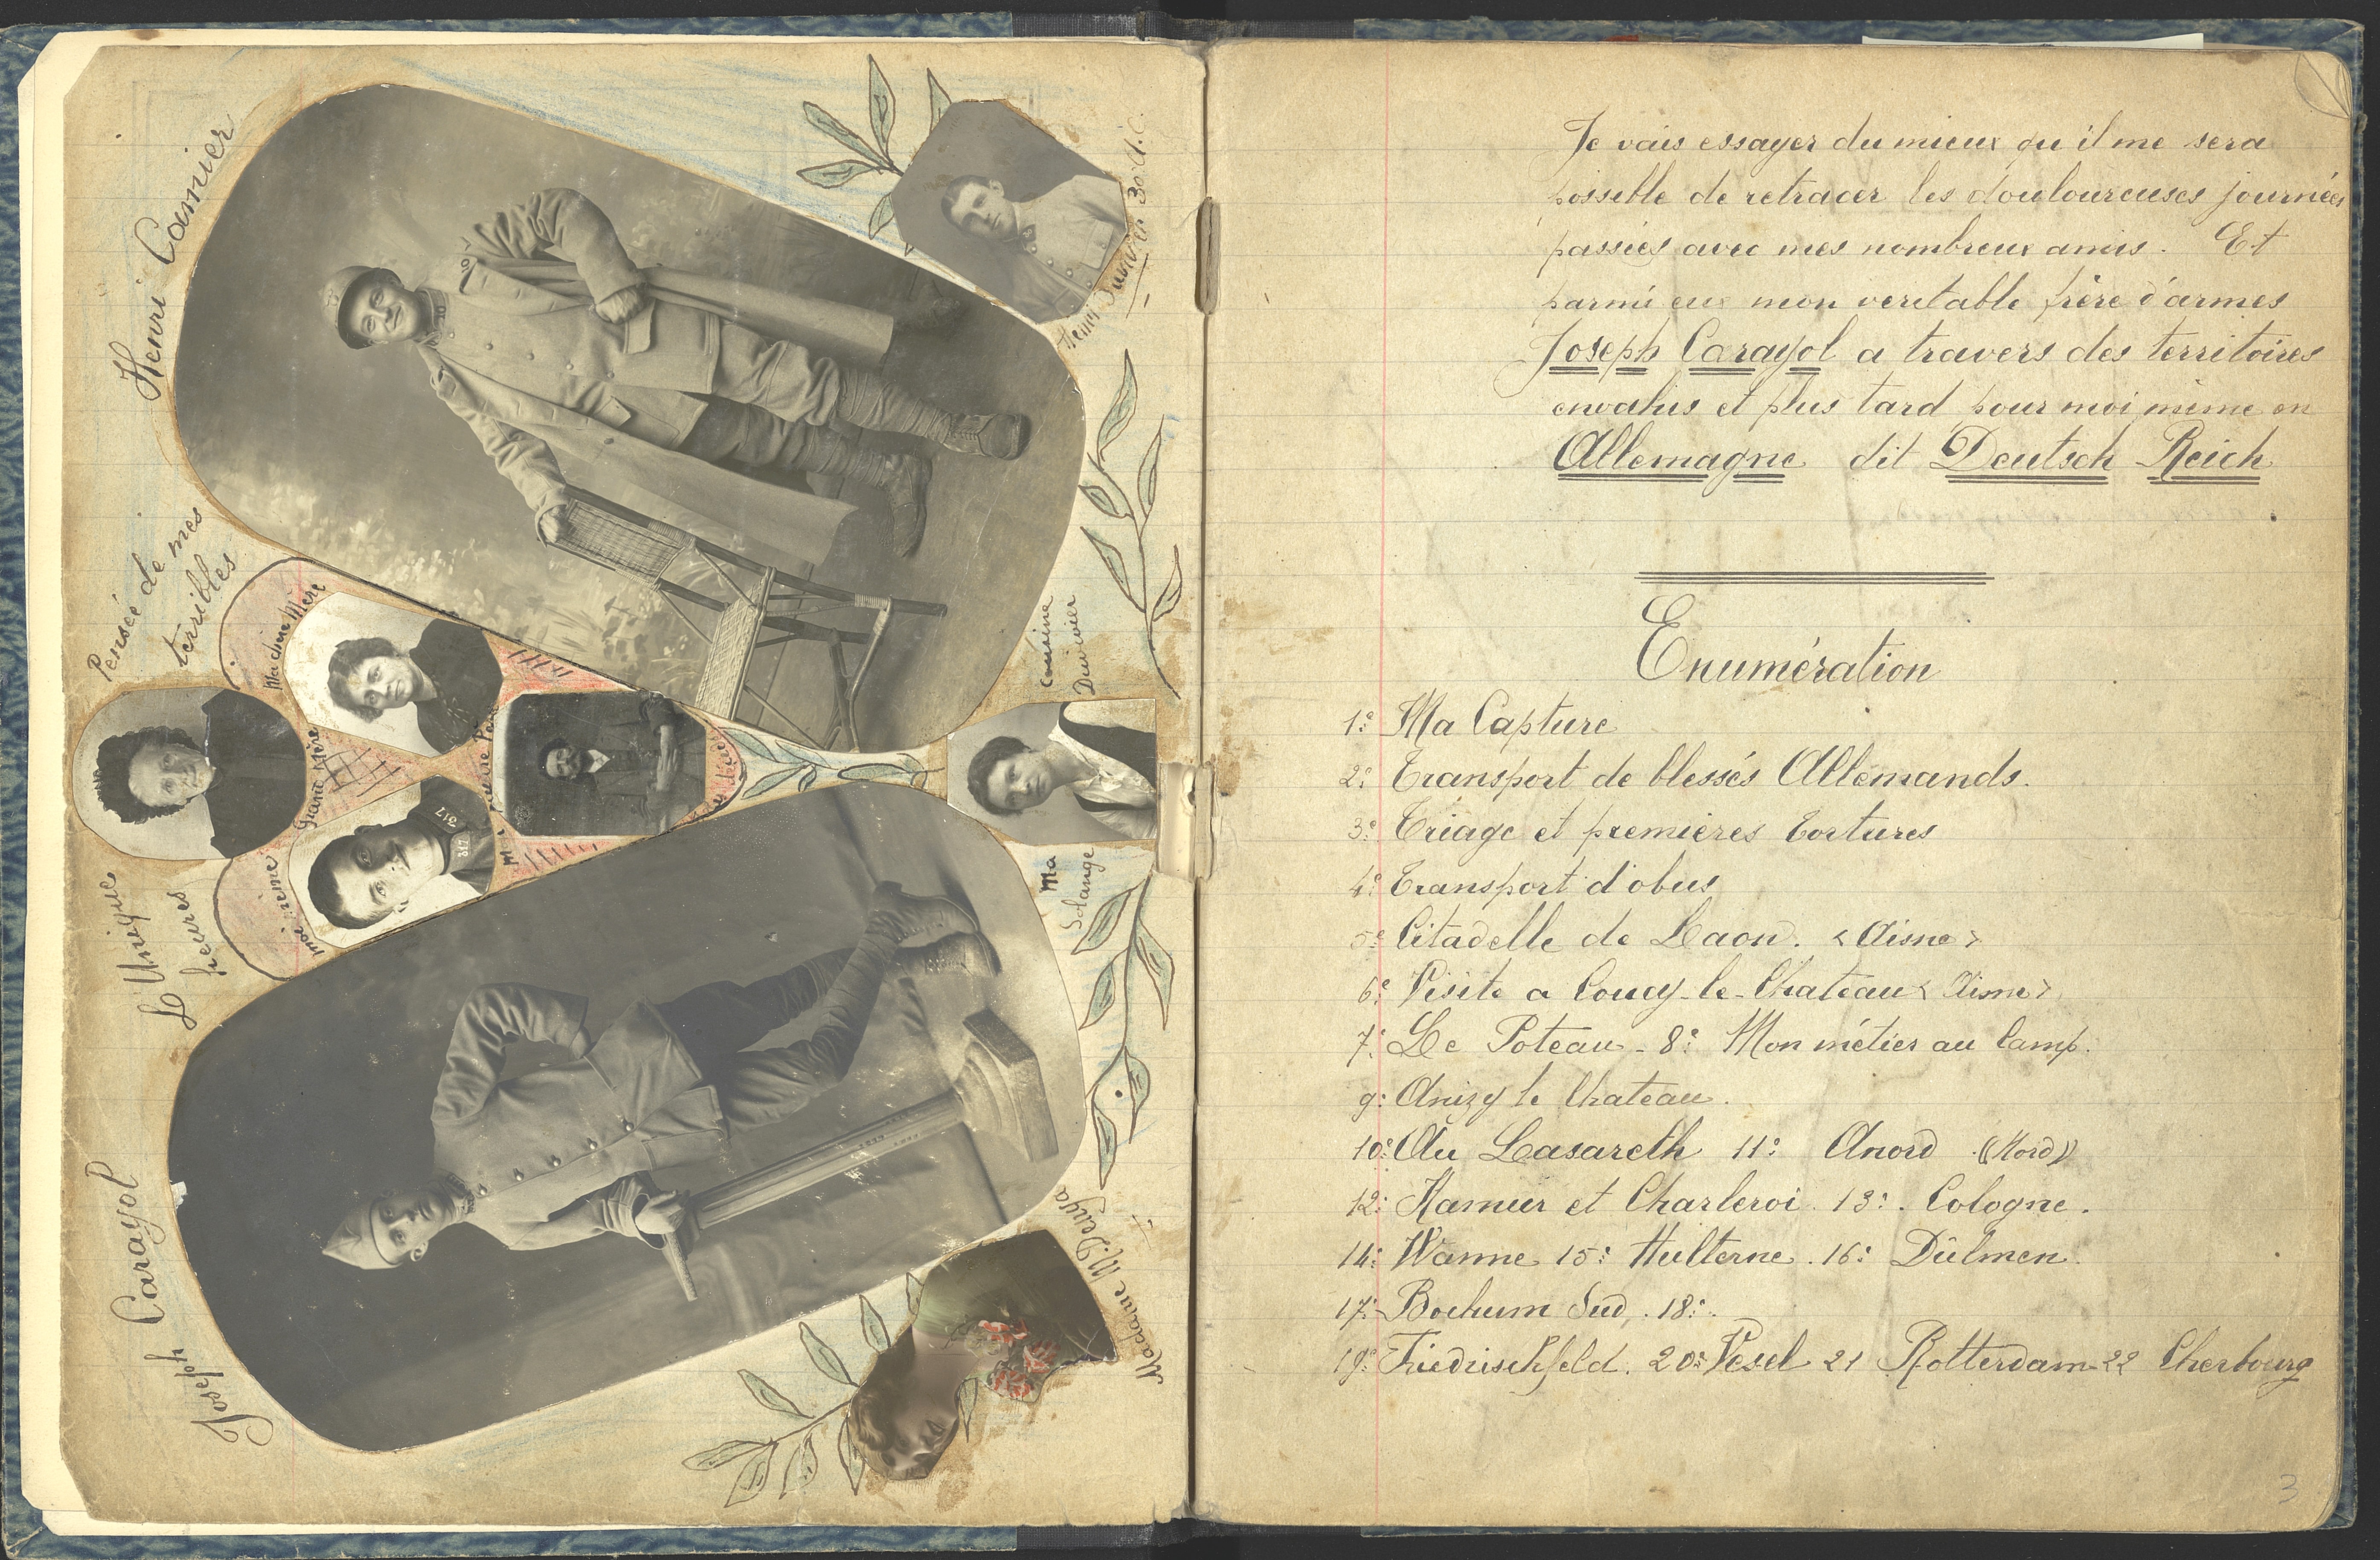 Henri Camier
Pensée de mes
terribles
L'Unique
heures
Joseph Carayol
Ma chere Mère
Grand Mère
moi même
317
317
30 A.C.
Cousine
Duvivier
Ma
Solange
Madame M. Denya
Je vais essayer du mieux qu'il me sera
possible de retracer les douloureuses journées
passées avec mes nombreux amis. Et
parmi eux mon veritable frère d'armes
Joseph Carayol a travers des territoires
envahis et plus tard pour moi même en
Allemagne dit Deutsch Reich
Enumération
1º: Ma Capture
2º: Transport de blessés Allemands.
3º: Triage et premières tortures
4º: Transport d'obus
5º: Citadelle de Laon. < Aisne >
6º: Visite a Coucy-le-Chateau < Aisne >
7º: Le Poteau - 8º: Mon métier au Camp.
9: Anizy le Chateau.
10º: Au Lasareth 11º: Anord ((Nord))
12: Namur et Charleroi. 13º: Cologne.
14: Wanne 15: Hulterne. 16: Dülmen.
17: Bochum Sud, . 18:.
19º: Friedrischfeld. 20: Vesel 21 Rotterdam-22 Cherbourg
3